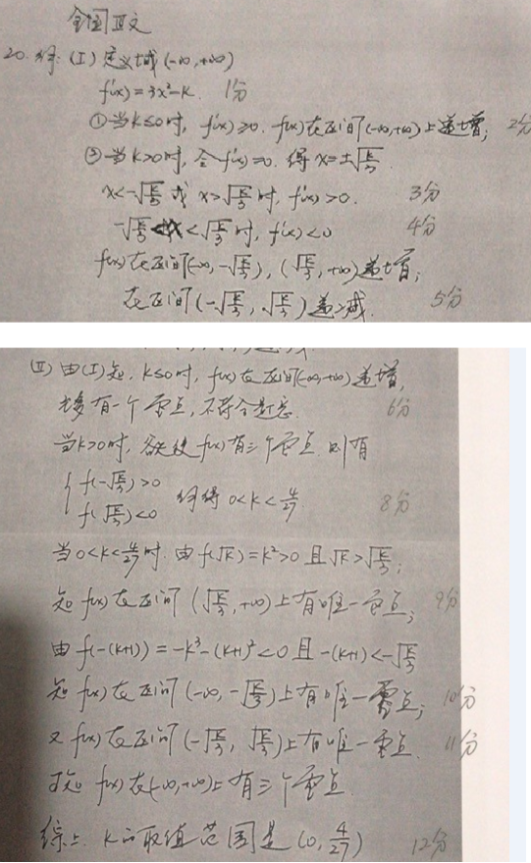 全国Ⅲ文
20. 解: (Ⅰ) 定义域 (-∞,+∞)
f'(x)=3x²-k. 1分
①当k≤0时, f'(x)≥0. f(x)在区间(-∞,+∞)上递增; 2分
②当k>0时, 令f'(x)=0. 得x=±√(k/3)
x<-√(k/3) 或 x>√(k/3) 时, f'(x)>0. 3分
-√(k/3)<x<√(k/3) 时, f'(x)<0 4分
f(x)在区间(-∞, -√(k/3)), (√(k/3), +∞)递增;
在区间(-√(k/3), √(k/3))递减. 5分
(Ⅱ) 由(Ⅰ)知, k≤0时, f(x)在区间(-∞,+∞)递增,
有一个零点, 不符合题意. 6分
当k>0时, f(x)有三个零点, 则有
{ f(-√(k/3))>0
f(√(k/3))<0 解得 0<k<4/27 8分
当0<k<4/27时. 由f(√k)=k²>0 且√k>√(k/3);
知f(x)在区间(√(k/3),+∞)上有唯一零点; 9分
由f(-(k+1))=-k³-(k+1)²<0 且-(k+1)<-√(k/3)
知f(x)在区间(-∞,-√(k/3))上有唯一零点; 10分
又f(x)在区间(-√(k/3), √(k/3))上有唯一零点. 11分
f(x)在(-∞,+∞)上有三个零点.
综上. k的取值范围是(0, 4/27) 12分